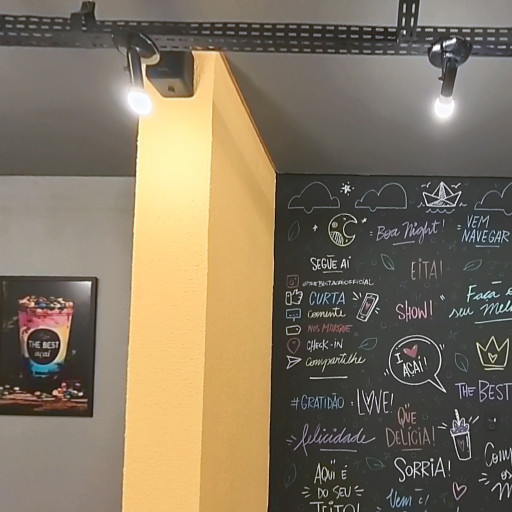 THE BEST
açaí
Boa Night!
VEM
NAVEGAR
SEGUE AÍ
EITA!
CURTA
Comente
NOS MARQUE
CHECK-IN
Compartilhe
SHOW!
Faça o
seu Melh
I
AÇAÍ!
THE BEST
#GRATIDÃO
LOVE!
QUE
DELÍCIA!
felicidade
SORRIA!
AQUI É
DO SEU
JEITO!
Vem